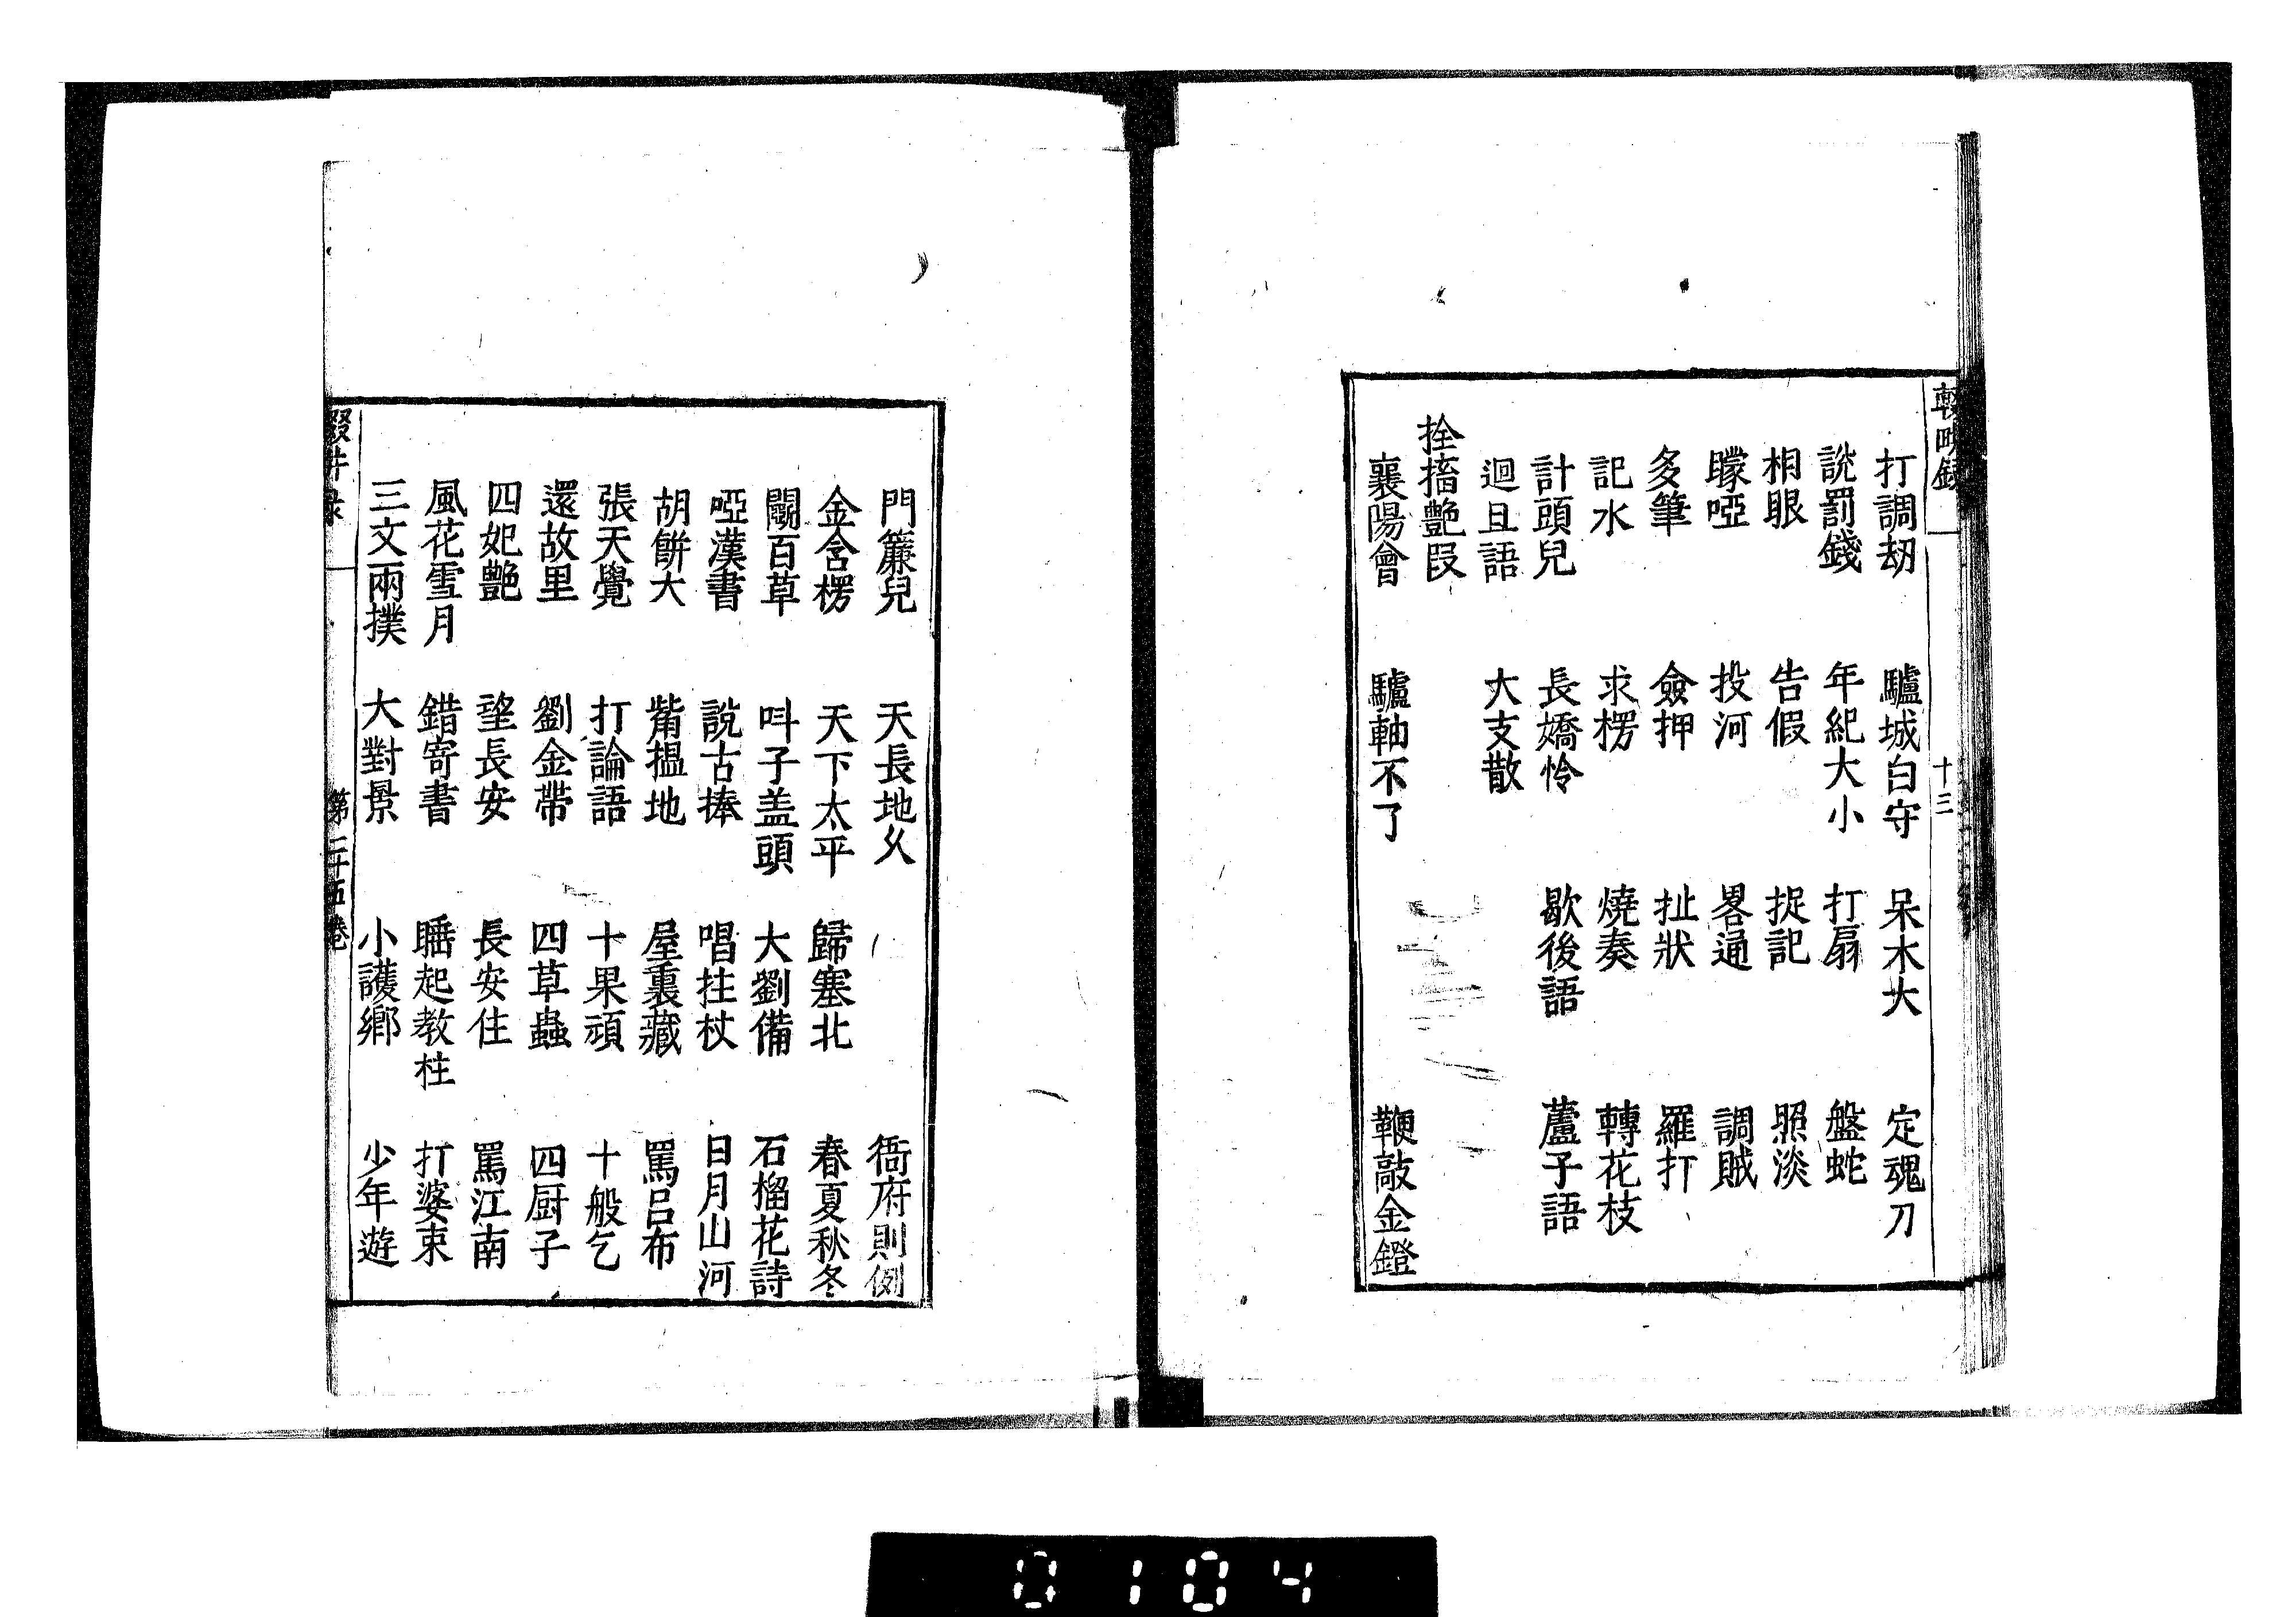 輟畊録 十三
打調刼 驢城白守 呆木大 定魂刀
說罰錢 年紀大小 打扇 盤蛇
相眼 告假 捉記 照淡
矇啞 投河 畧通 調賊
多筆 僉押 扯狀 羅打
記水 求楞 燒奏 轉花枝
計頭兒 長嬌怜 歇後語 蘆子語
迴且語 大支散
拴搐艶段
襄陽會 驢軸不了 鞭敲金鐙
門簾兒 天長地久 衙府則例
金含楞 天下太平 歸塞北 春夏秋冬
鬭百草 呌子盖頭 大劉備 石榴花詩
啞漢書 說古捧 唱拄杖 日月山河
胡餅大 觜揾地 屋裏藏 罵呂布
張天覺 打論語 十果頑 十般乞
還故里 劉金帶 四草蟲 四厨子
四妃艶 望長安 長安住 罵江南
風花雪月 錯寄書 睡起教柱 打婆束
三文兩撲 大對景 小護鄉 少年遊
輟畊录 第二十五卷
0104